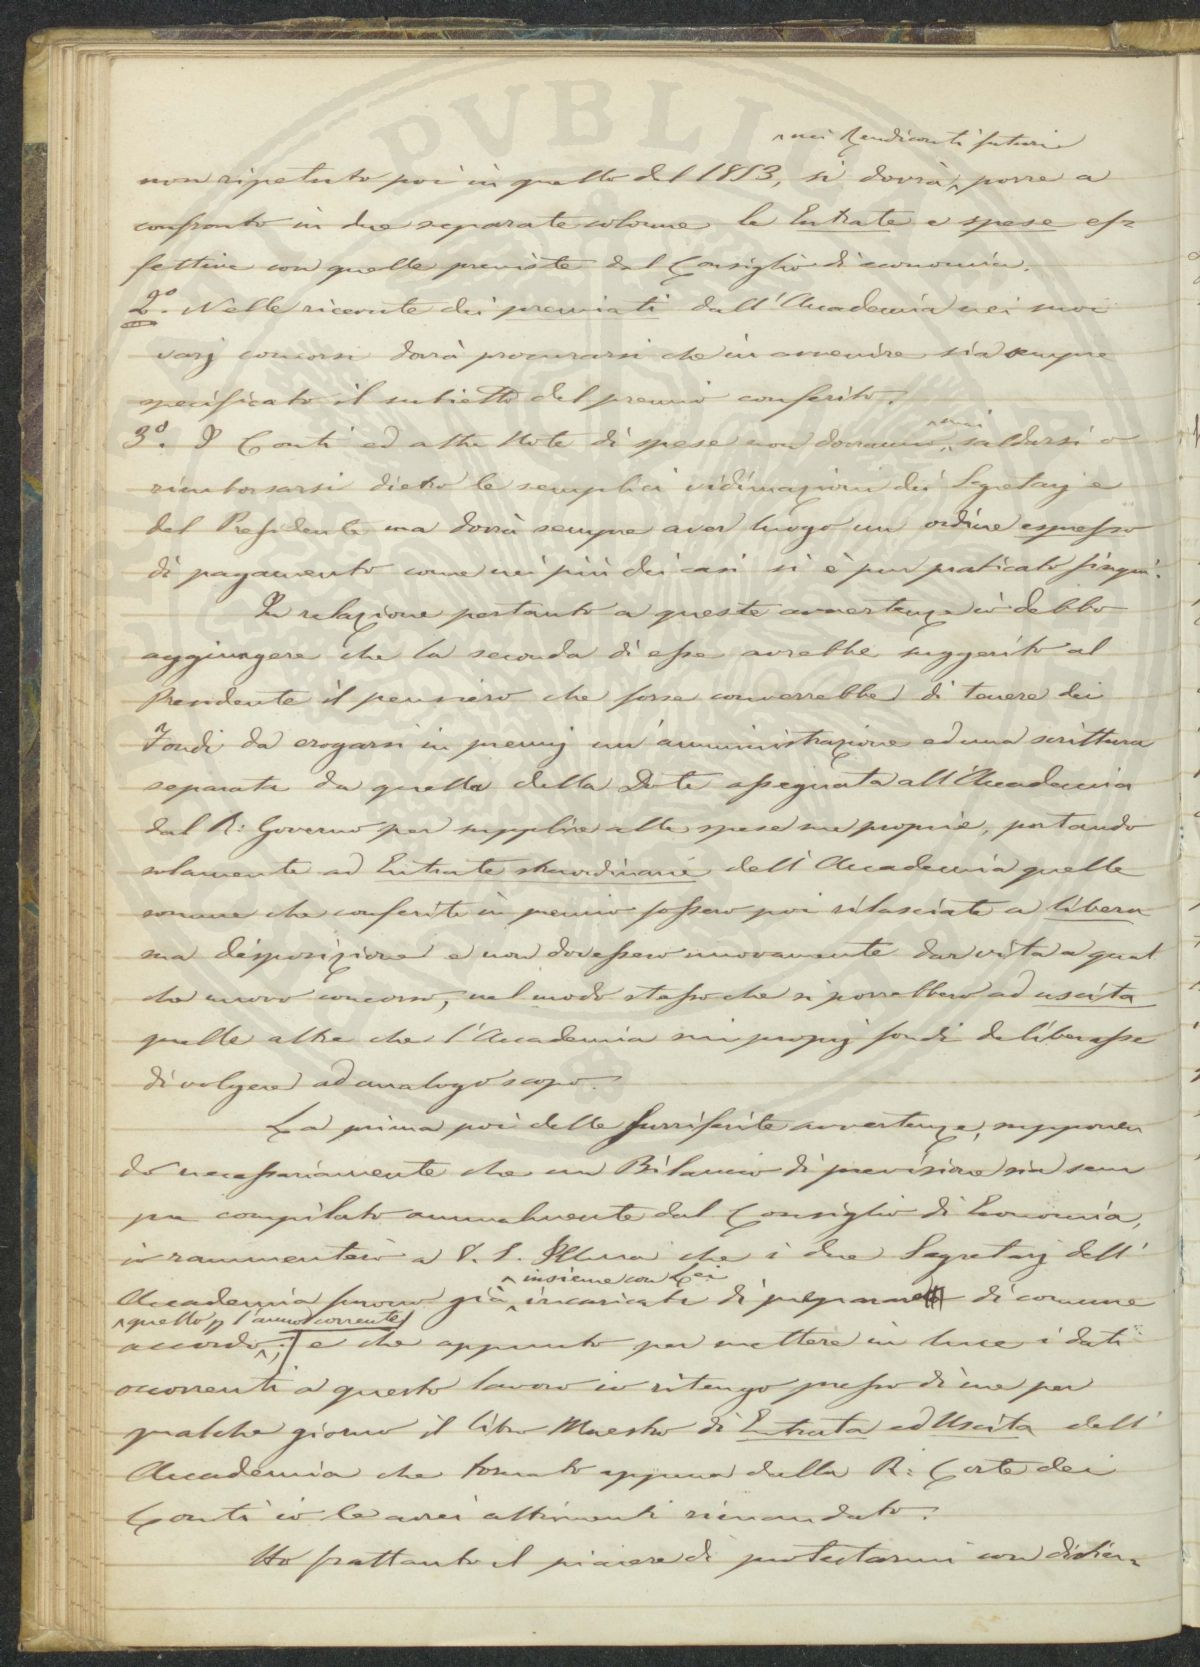 PVBLIC
nei Rendiconti futuri
non ripetuto poi in quello del 1853, si dovrà porre a
confronto in due separate colonne le Entrate e spese ef=
fettive con quelle previste dal Consiglio di economia.
2º. Nelle ricevute dei premiati dall'Accademia nei suoi
varj concorsi dovrà procurarsi che in avvenire sia sempre
specificato il subietto del premio conferito.
3º. I Conti ed altre Note di spese non dovranno mai saldarsi o
rimborsarsi dietro le semplici vidimazioni dei Segretarj e
del Presidente ma dovrà sempre aver luogo un ordine espresso
di pagamento come nei più dei casi si è pur praticato finqui.
In relazione pertanto a queste avvertenze io debbo
aggiungere che la seconda di esse avrebbe suggerito al
Presidente il pensiero che forse converrebbe di tenere dei
Fondi da erogarsi in premj un'amministrazione ed una scrittura
separata da quella della Dote assegnata all'Accademia
dal R: Governo per supplire alle spese sue proprie, portando
solamente ad Entrate straordinarie dell'Accademia quelle
somme che conferite in premio fossero poi rilasciate a libera
sua disposizione e non dovessero nuovamente dar vita a qual
che nuovo concorso, nel modo stesso che si porrebbero ad uscita
quelle altre che l'Accademia sui proprj fondi deliberasse
di volgere ad analogo scopo.
La prima poi delle surriferite avvertenze, supponen
do necessariamente che un Bilancio di previsione sia sem
pre compilato annualmente dal Consiglio di Economia,
io rammenterò a V. S. Illma che i due Segretarj dell'
insieme con Lei
Accademia furono già incaricati di preparare di comune
quello p l'anno corrente
accordo; e che appunto per mettere in luce i dati
occorrenti a questo lavoro io ritengo presso di me per
qualche giorno il libro Maestro di Entrata ed Uscita dell'
Accademia che tornato appena dalla R: Corte dei
Conti io le avrei altrimenti rimandato.
Ho frattanto il piacere di protestarmi con distin=